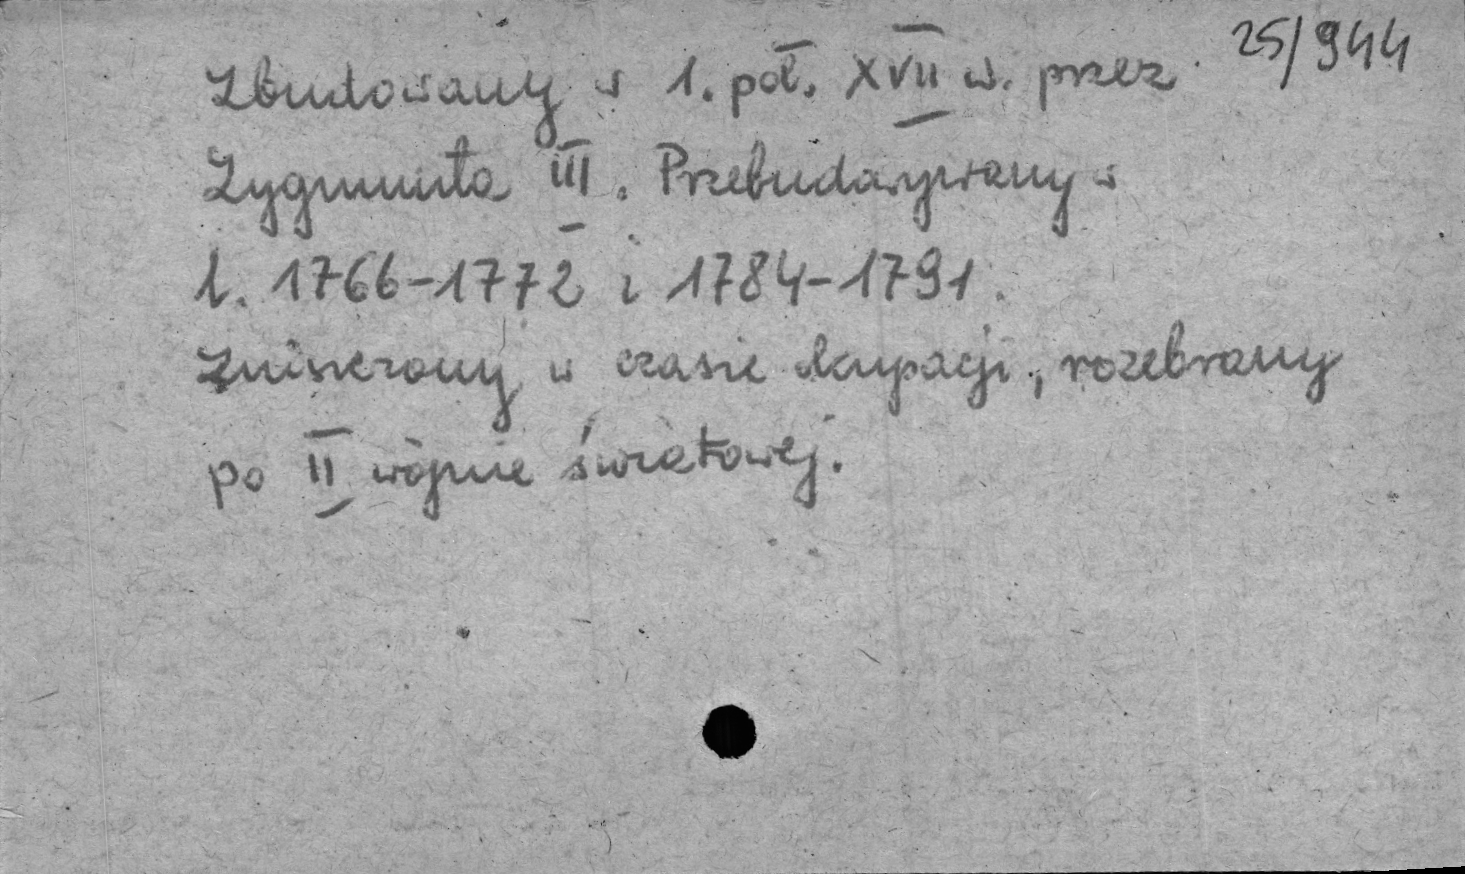 25/944
Zbudowany w 1. poł. XVII w. przez
Zygmunta III. Przebudowywany w
l. 1766-1772 i 1784-1791.
Zniszczony w czasie okupacji, rozebrany
po II wojnie światowej.